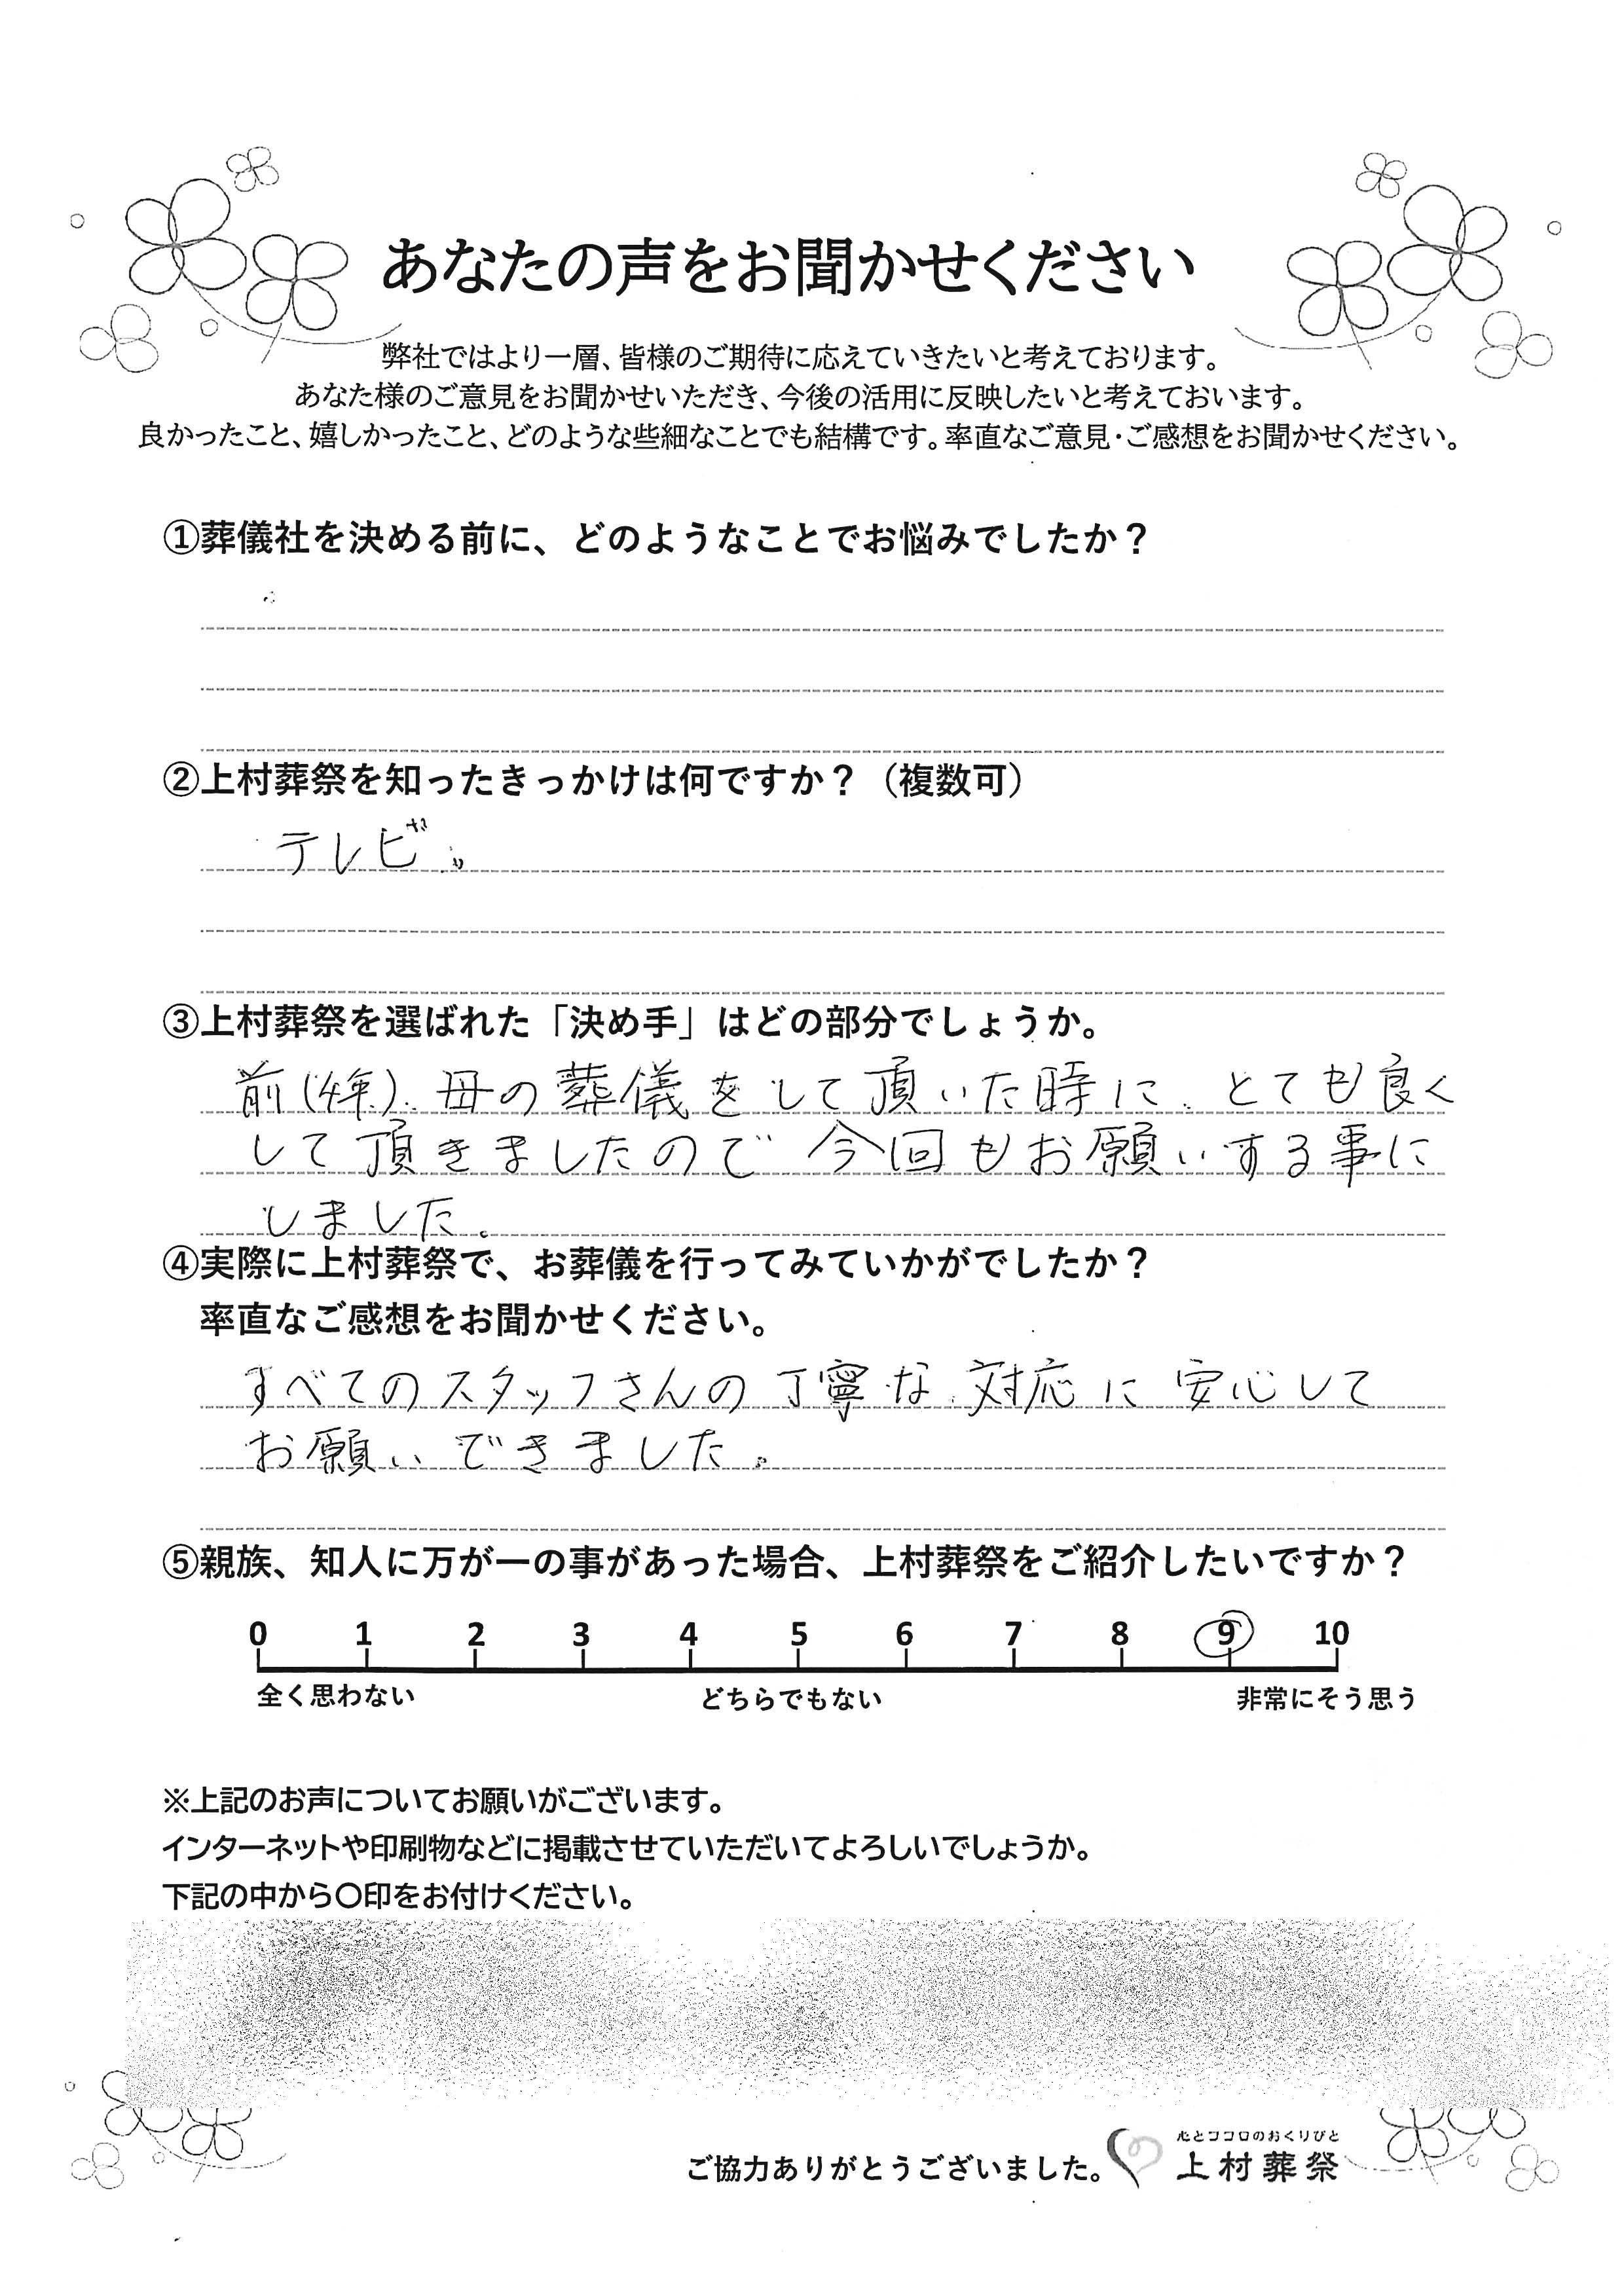 あなたの声をお聞かせください
弊社ではより一層、皆様のご期待に応えていきたいと考えております。
あなた様のご意見をお聞かせいただき、今後の活用に反映したいと考えておいます。
良かったこと、嬉しかったこと、どのような些細なことでも結構です。率直なご意見・ご感想をお聞かせください。
①葬儀社を決める前に、どのようなことでお悩みでしたか？
②上村葬祭を知ったきっかけは何ですか？（複数可）
テレビ。
③上村葬祭を選ばれた「決め手」はどの部分でしょうか。
前(4年)、母の葬儀をして頂いた時に、とても良く
して頂きましたので 今回もお願いする事に
しました。
④実際に上村葬祭で、お葬儀を行ってみていかがでしたか？
率直なご感想をお聞かせください。
すべてのスタッフさんの丁寧な対応に安心して
お願いできました。
⑤親族、知人に万が一の事があった場合、上村葬祭をご紹介したいですか？
0 1 2 3 4 5 6 7 8 9 10
全く思わない どちらでもない 非常にそう思う
※上記のお声についてお願いがございます。
インターネットや印刷物などに掲載させていただいてよろしいでしょうか。
下記の中から〇印をお付けください。
心とココロのおくりびと
ご協力ありがとうございました。 上村葬祭